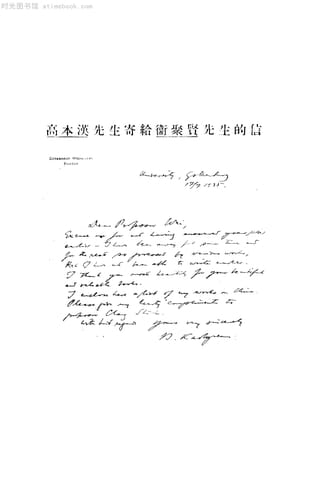 时光图书馆 · atimebook.com
高本漢先生寄給衛聚賢先生的信
University, Gothenburg
1935.
Dear Professor Wei,
Excuse me for not having answered your
earlier – I have been away for some time and
for the rest so pressed by various works,
that I have not been able to write earlier.
I thank you most heartily for your beautiful
and valuable books.
I enclose here a list of my works on China.
Please give my hearty compliments to
professor Chang
With best regards Yours very sincerely
B. Karlgren